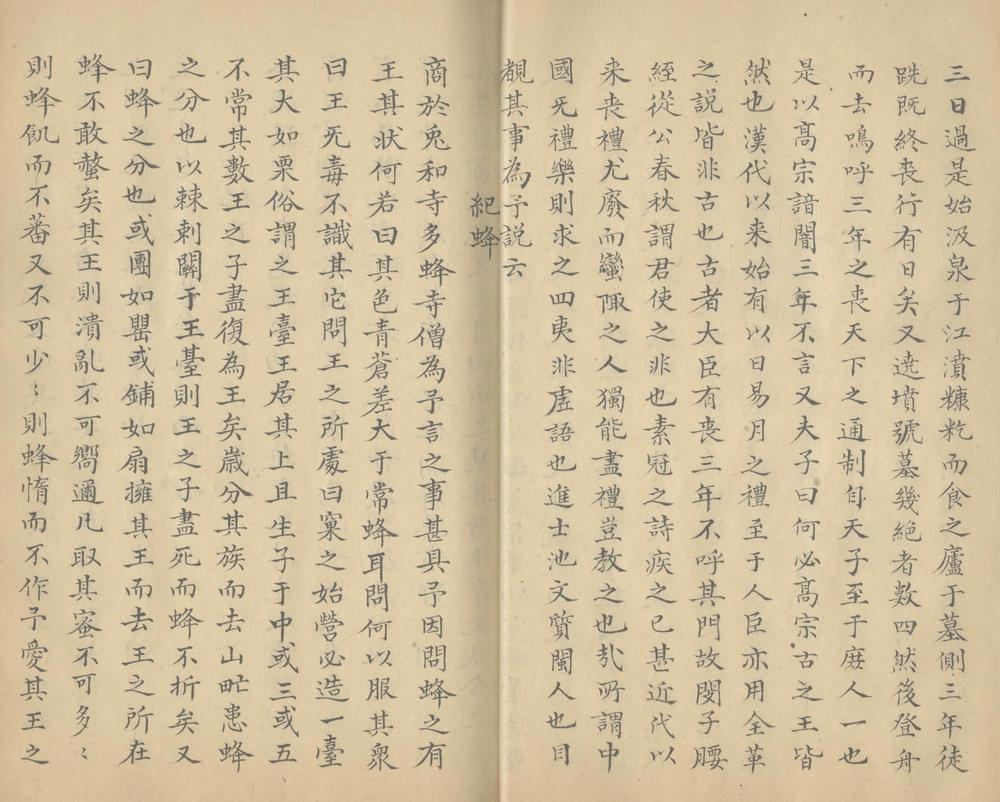 三日過是始汲泉于江濆糠籺而食之廬于墓側三年徒
跣既終喪行有日矣又遶墳號墓幾絕者數四然後登舟
而去嗚呼三年之喪天下之通制自天子至于庶人一也
是以髙宗諳闇三年不言又夫子曰何必髙宗古之王皆
然也漢代以来始有以日易月之禮至于人臣亦用全革
之說皆非古也古者大臣有喪三年不呼其門故閔子腰
絰從公春秋謂君使之非也素冠之詩疾之已甚近代以
来喪禮尤廢而蠻陬之人獨能盡禮豈教之也㢤所謂中
國旡禮樂則求之四夷非虛語也進士池文質閩人也目
覩其事為予說云
紀蜂
商於兎和寺多蜂寺僧為予言之事甚具予因問蜂之有
王其状何若曰其色青蒼差大于常蜂耳問何以服其衆
曰王旡毒不識其它問王之所處曰窠之始營必造一臺
其大如栗俗謂之王臺王居其上且生子于中或三或五
不常其數王之子盡復為王矣歲分其族而去山甿患蜂
之分也以棘刺關于王䑓則王之子盡死而蜂不折矣又
曰蜂之分也或團如罌或鋪如扇擁其王而去王之所在
蜂不敢螫矣其王則潰亂不可嚮邇凡取其宻不可多〻
則蜂飢而不蕃又不可少〻則蜂惰而不作予愛其王之